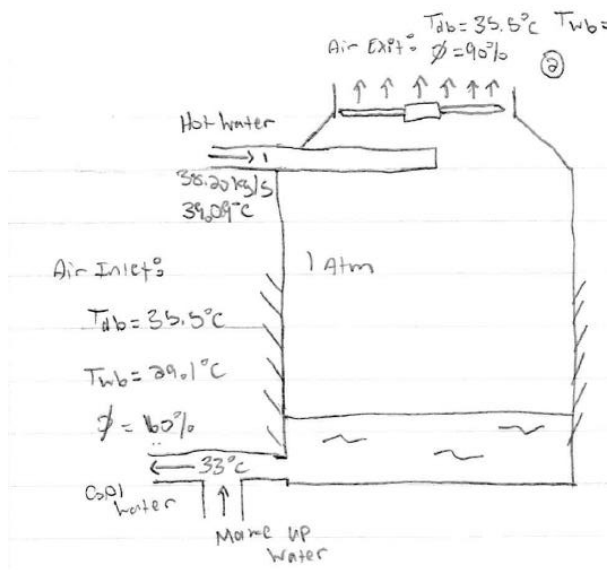 Tdb = 35.5°C Twb =
Air Exit: ø = 90%
②
Hot Water
1
38.20 kg/s
39.09°C
Air Inlet:
1 Atm
Tdb = 35.5°C
Twb = 29.1°C
ø = 60%
33°C
Cool
Water
Make up
Water